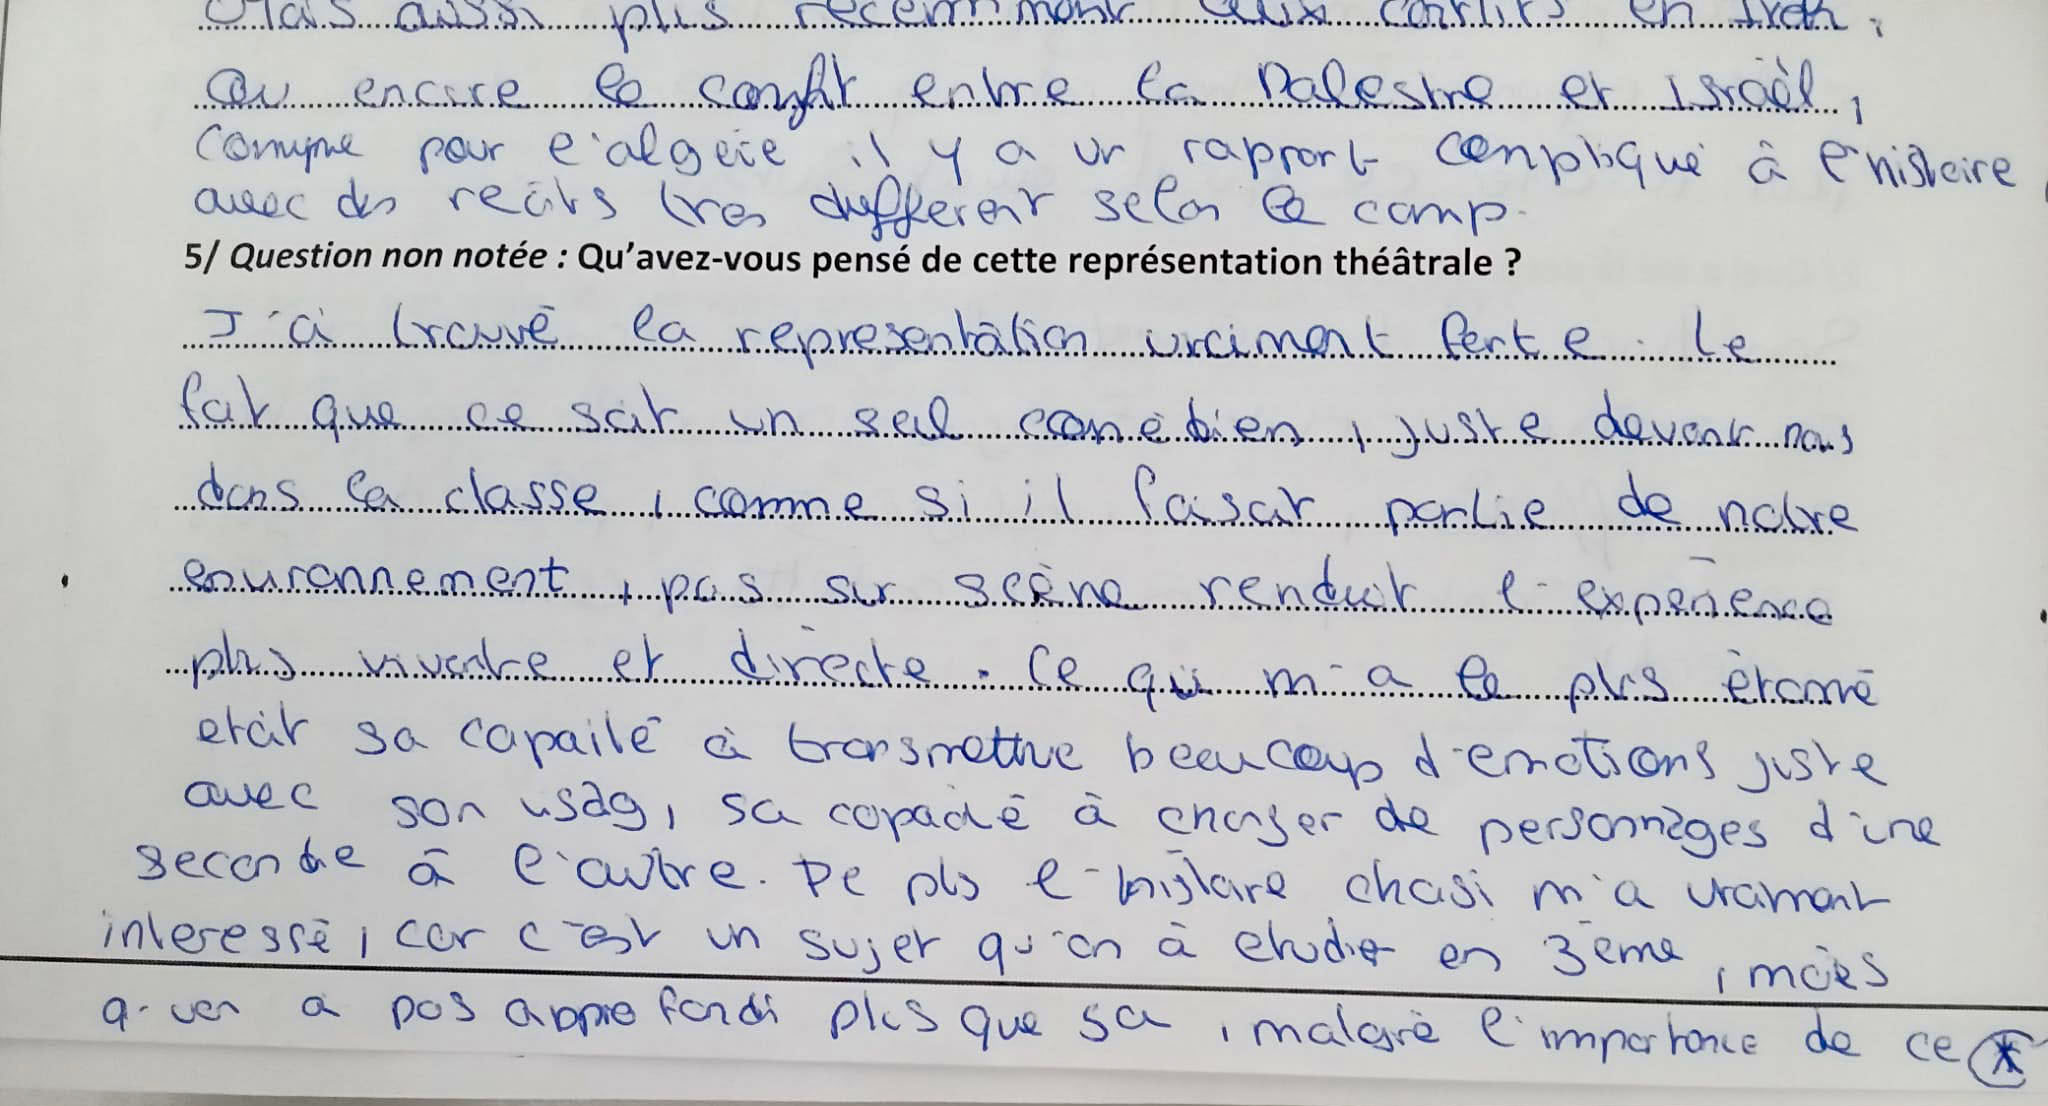 Mais aussi plus recemment aux conflits en Irak,
Ou encore le conflit entre la Palestine et Israël,
comme pour l'algerie il y a un rapport compliqué à l'histoire
avec des recits tres different selon le camp.
5/ Question non notée : Qu'avez-vous pensé de cette représentation théâtrale ?
J'ai trouvé la representation vraiment forte. Le
fait que ce soit un seul comédien, juste devant nous
dans la classe, comme si il faisait partie de notre
environnement, pas sur scène rendait l'expérience
plus vivante et directe. Ce qui m'a le plus étonné
etait sa capaité à transmettre beaucoup d'emotions juste
avec son visage, sa capacité à changer de personnages d'une
seconde à l'autre. De plus l'histoire choisi m'a vraiment
interessé, car c'est un sujet qu'on à etudié en 3ème, mais
qu'on a pas approfondi plus que sa, malgré l'importance de ce *